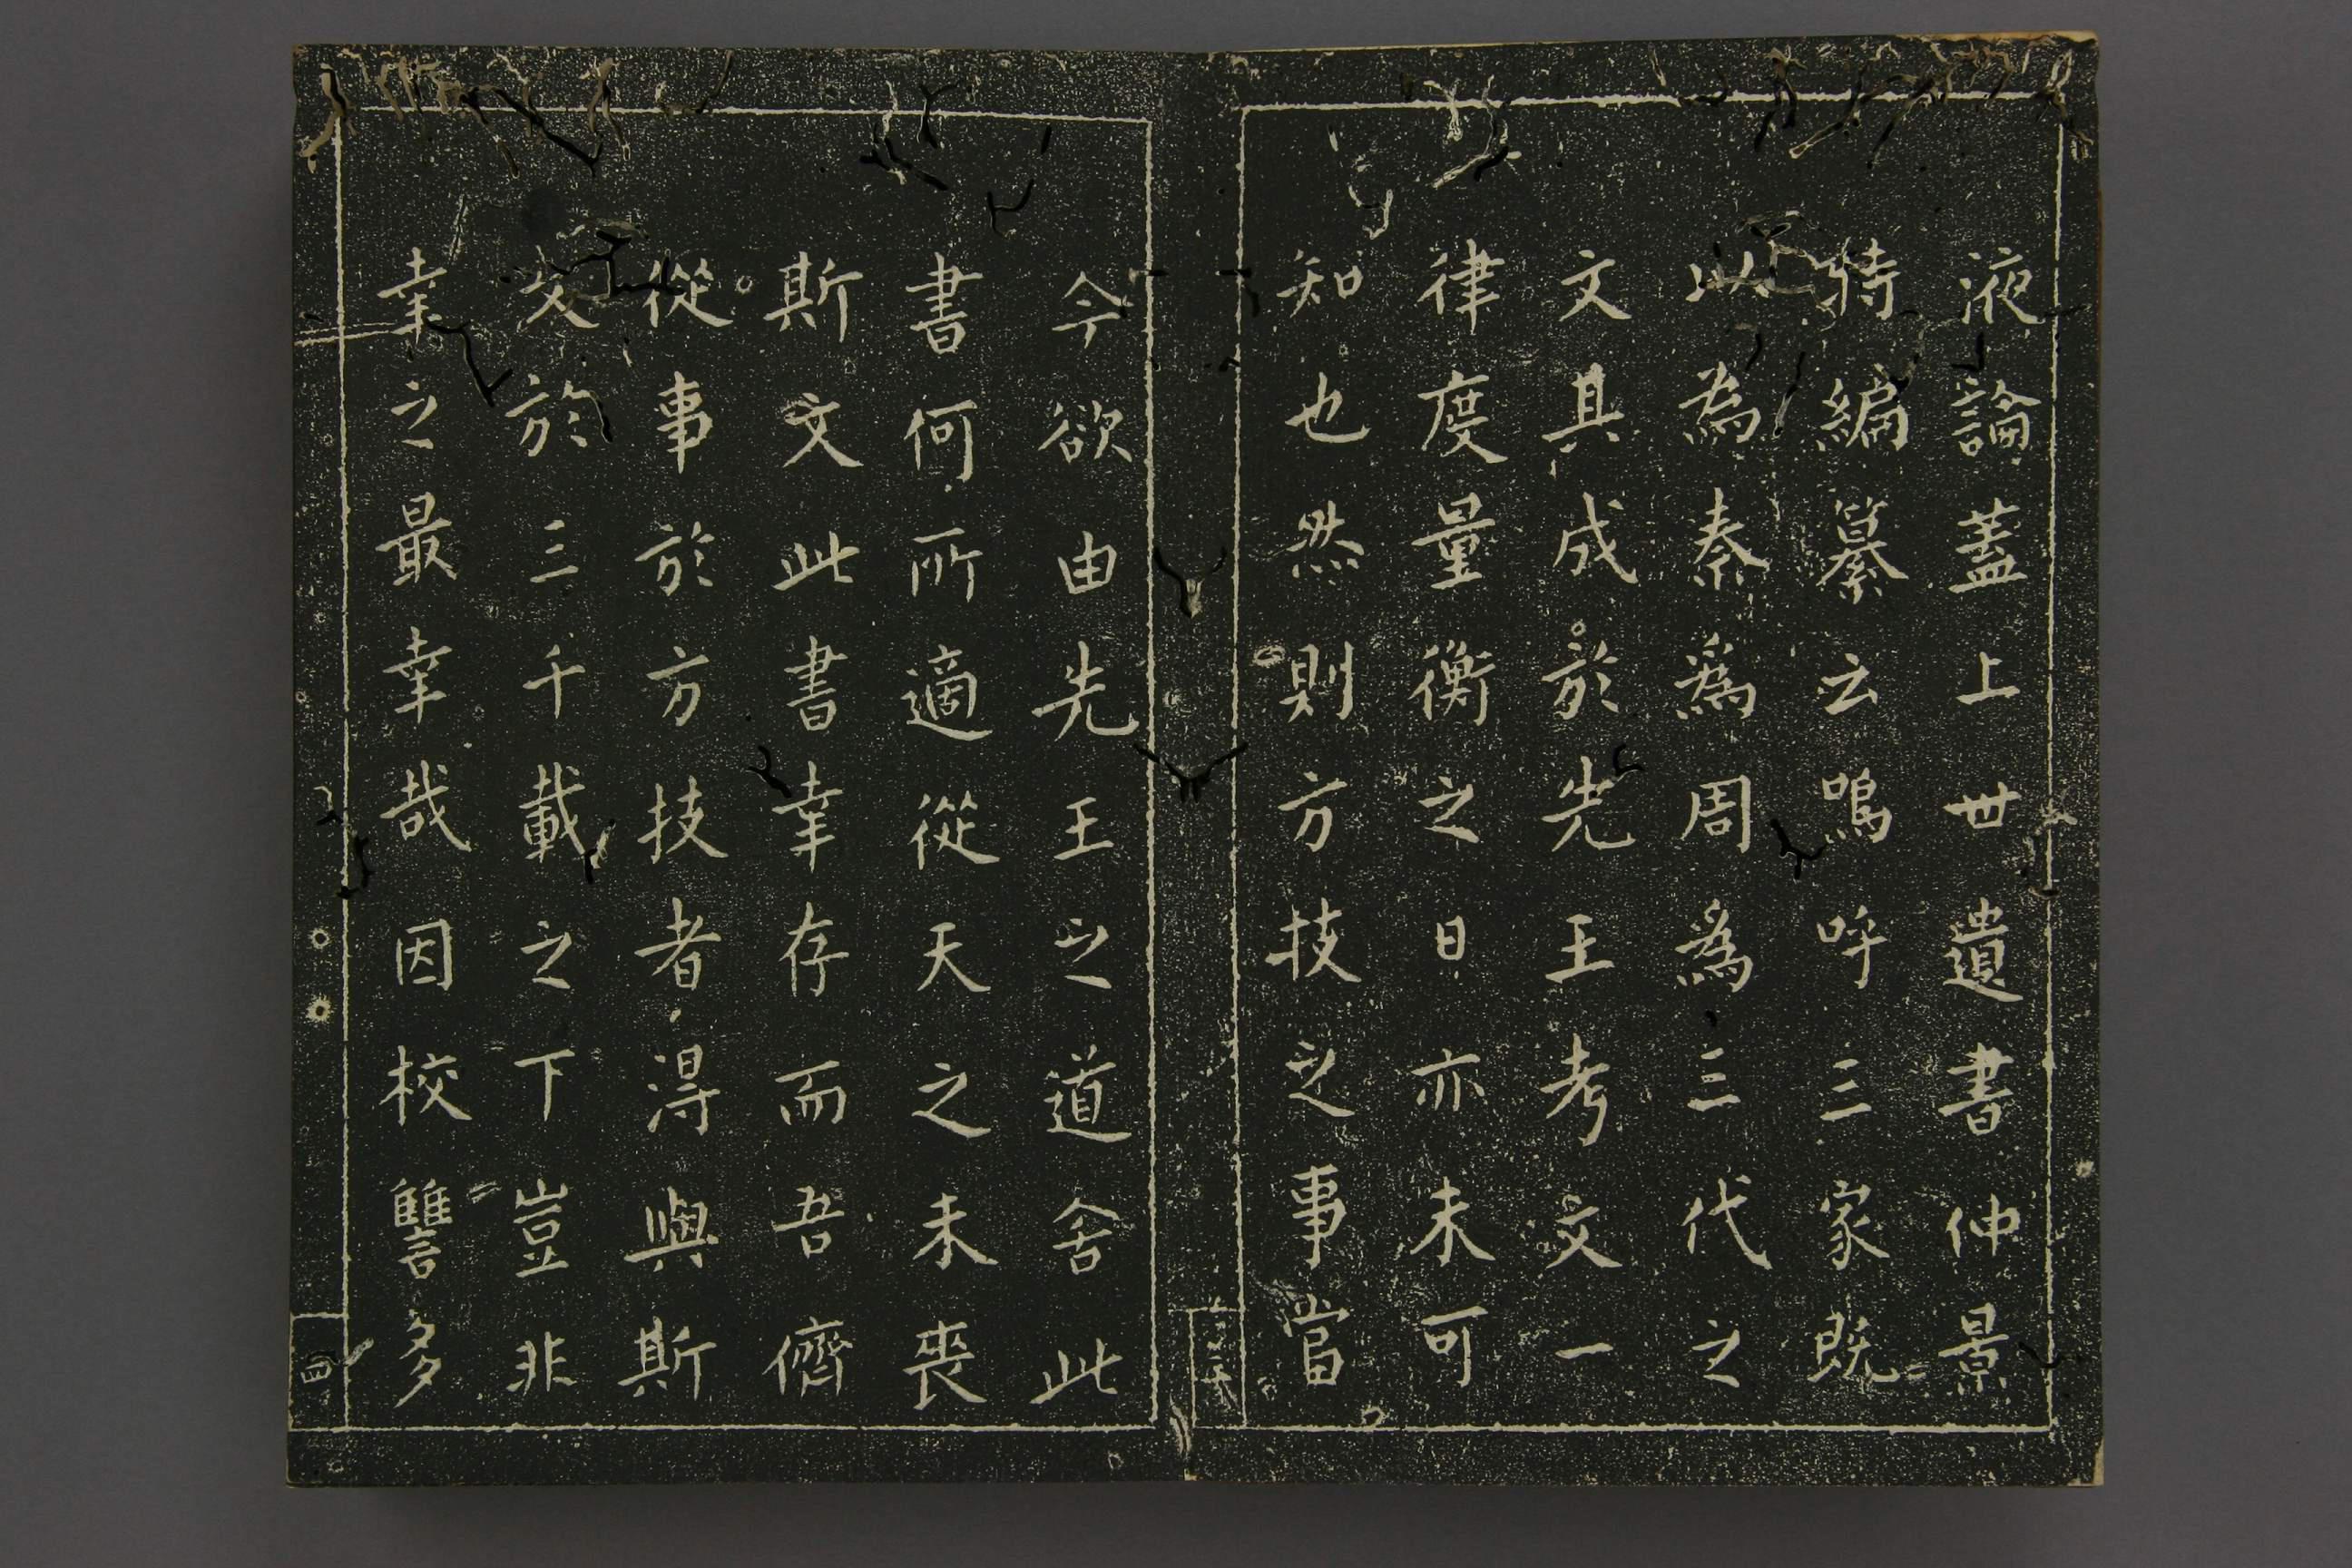 液論蓋上世遺書仲景
特編纂云嗚呼三家既
以為秦為周為三代之
文具成於先王考文一
律度量衡之日亦未可
知也然則方技之事當
今欲由先王之道舍此
書何所適從天之未喪
斯文此書幸存而吾儕
從事於方技者得與斯
文於三千載之下豈非
幸之最幸哉因校讐多
四